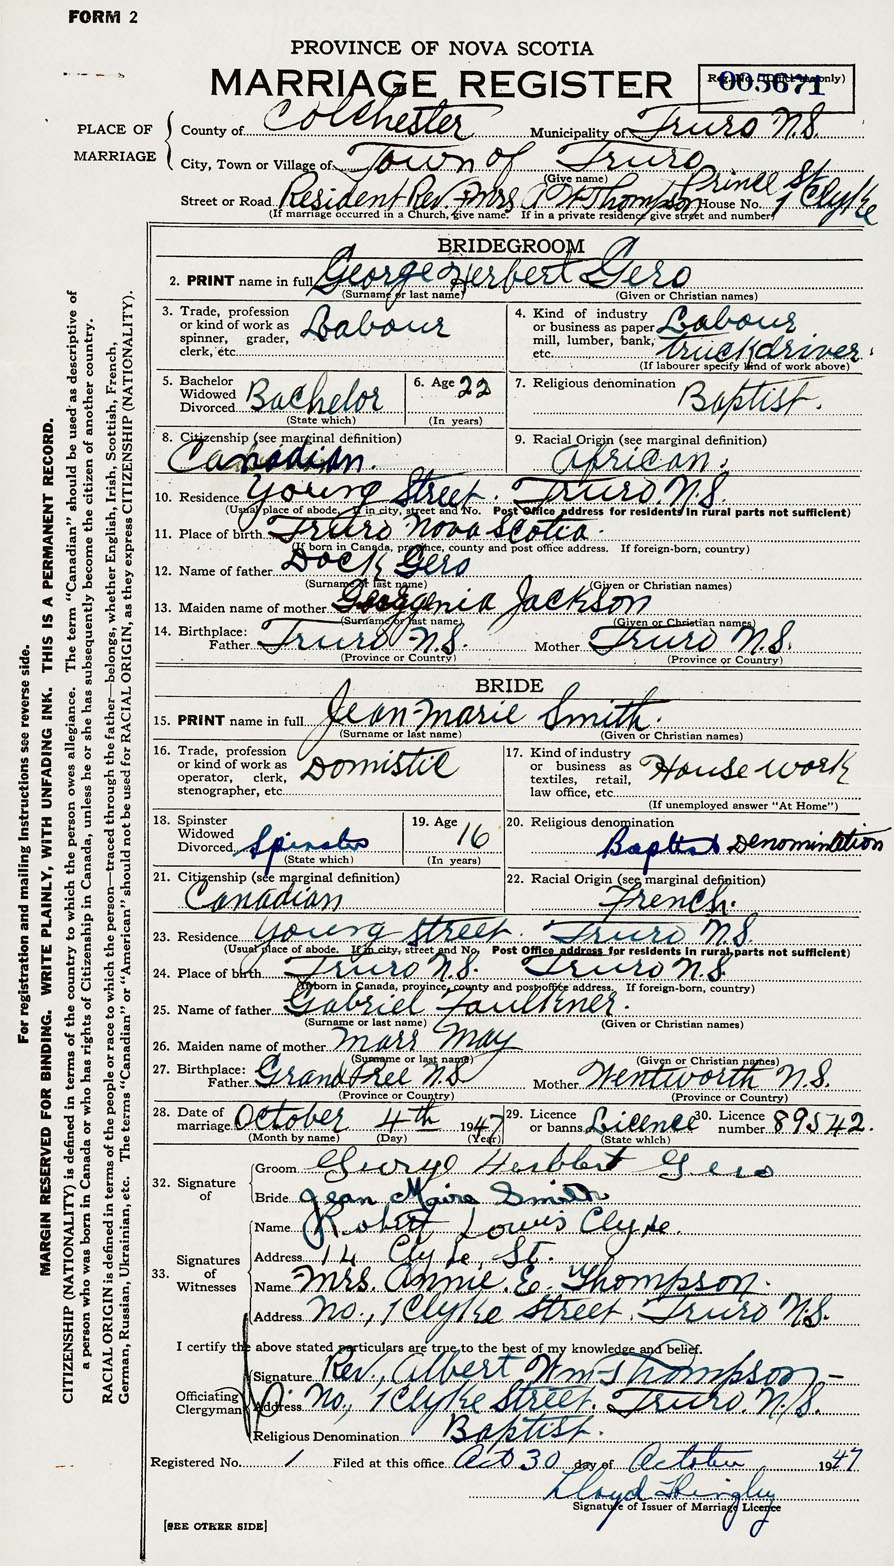 FORM 2
PROVINCE OF NOVA SCOTIA
MARRIAGE REGISTER
Reg. No. (Office use only)
005671
PLACE OF MARRIAGE
County of Colchester Municipality of Truro N.S.
City, Town or Village of Town of Truro
(Give name)
Prince St
Street or Road Resident Rev. & Mrs A W Thompson House No. 1 Clyke
(If marriage occurred in a Church, give name. If in a private residence give street and number)
BRIDEGROOM
2. PRINT name in full George Herbert Gero
(Surname or last name) (Given or Christian names)
3. Trade, profession or kind of work as spinner, grader, clerk, etc. Labour
4. Kind of industry or business as paper mill, lumber, bank, etc. Labour truck driver.
(If labourer specify kind of work above)
5. Bachelor Widowed Divorced Bachelor
(State which)
6. Age 22
(In years)
7. Religious denomination Baptist.
8. Citizenship (see marginal definition) Canadian.
9. Racial Origin (see marginal definition) African.
10. Residence Young Street. Truro. N.S.
(Usual place of abode. If in city, street and No. Post Office address for residents in rural parts not sufficient)
11. Place of birth Truro Nova Scotia.
(If born in Canada, province, county and post office address. If foreign-born, country)
12. Name of father Dock Gero
(Surname or last name) (Given or Christian names)
13. Maiden name of mother Jackson
(Surname or last name) (Given or Christian names)
14. Birthplace:
Father Truro N.S. Mother Truro N.S.
(Province or Country) (Province or Country)
BRIDE
15. PRINT name in full Jean Marie Smith.
(Surname or last name) (Given or Christian names)
16. Trade, profession or kind of work as operator, clerk, stenographer, etc. Domistic
17. Kind of industry or business as textiles, retail, law office, etc. House work
(If unemployed answer "At Home")
18. Spinster Widowed Divorced Spinster
(State which)
19. Age 16
(In years)
20. Religious denomination Baptist Denomination
21. Citizenship (see marginal definition) Canadian
22. Racial Origin (see marginal definition) French.
23. Residence Young Street. Truro N.S
(Usual place of abode. If in city, street and No. Post Office address for residents in rural parts not sufficient)
24. Place of birth Truro N.S. Truro N.S
(If born in Canada, province, county and post office address. If foreign-born, country)
25. Name of father Gabriel Faulkner.
(Surname or last name) (Given or Christian names)
26. Maiden name of mother Marr May
(Surname or last name) (Given or Christian names)
27. Birthplace:
Father N.S Mother Wentworth N.S.
(Province or Country) (Province or Country)
28. Date of marriage October 4th 1947
(Month by name) (Day) (Year)
29. Licence or banns Licence
(State which)
30. Licence number 89542.
32. Signature of
Groom George Herbbert Gero
Bride Jean Maire Smith
33. Signatures of Witnesses
Name Robert Louis Clyke.
Address 14 Clyke, St.
Name Mrs. Annie. E. Thompson.
Address No., 1 Clyke Street. Truro N.S.
I certify the above stated particulars are true to the best of my knowledge and belief.
Officiating Clergyman
Signature Rev., Albert Wm Thompson
Address No, 1 Clyke Street. Truro. N.S.
Religious Denomination Baptist.
Registered No. 1 Filed at this office Oct 30 day of October 1947
Signature of Issuer of Marriage Licence
[SEE OTHER SIDE]
For registration and mailing instructions see reverse side.
MARGIN RESERVED FOR BINDING. WRITE PLAINLY, WITH UNFADING INK. THIS IS A PERMANENT RECORD.
CITIZENSHIP (NATIONALITY) is defined in terms of the country to which the person owes allegiance. The term "Canadian" should be used as descriptive of
a person who was born in Canada or who has rights of Citizenship in Canada, unless he or she has subsequently become the citizen of another country.
RACIAL ORIGIN is defined in terms of the people or race to which the person—traced through the father—belongs, whether English, Irish, Scottish, French,
German, Russian, Ukrainian, etc. The terms "Canadian" or "American" should not be used for RACIAL ORIGIN, as they express CITIZENSHIP (NATIONALITY).